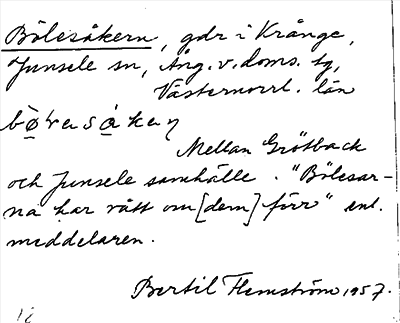 Bölesåkern, gdr i Krånge,
Junsele sn, Ång. v. doms. tg,
Västernorrl. län
Mellan Grötback
och Junsele samhälle. "Bölesar-
na har rått om [dem] förr" enl.
meddelaren.
Bertil Flemström, 1957.